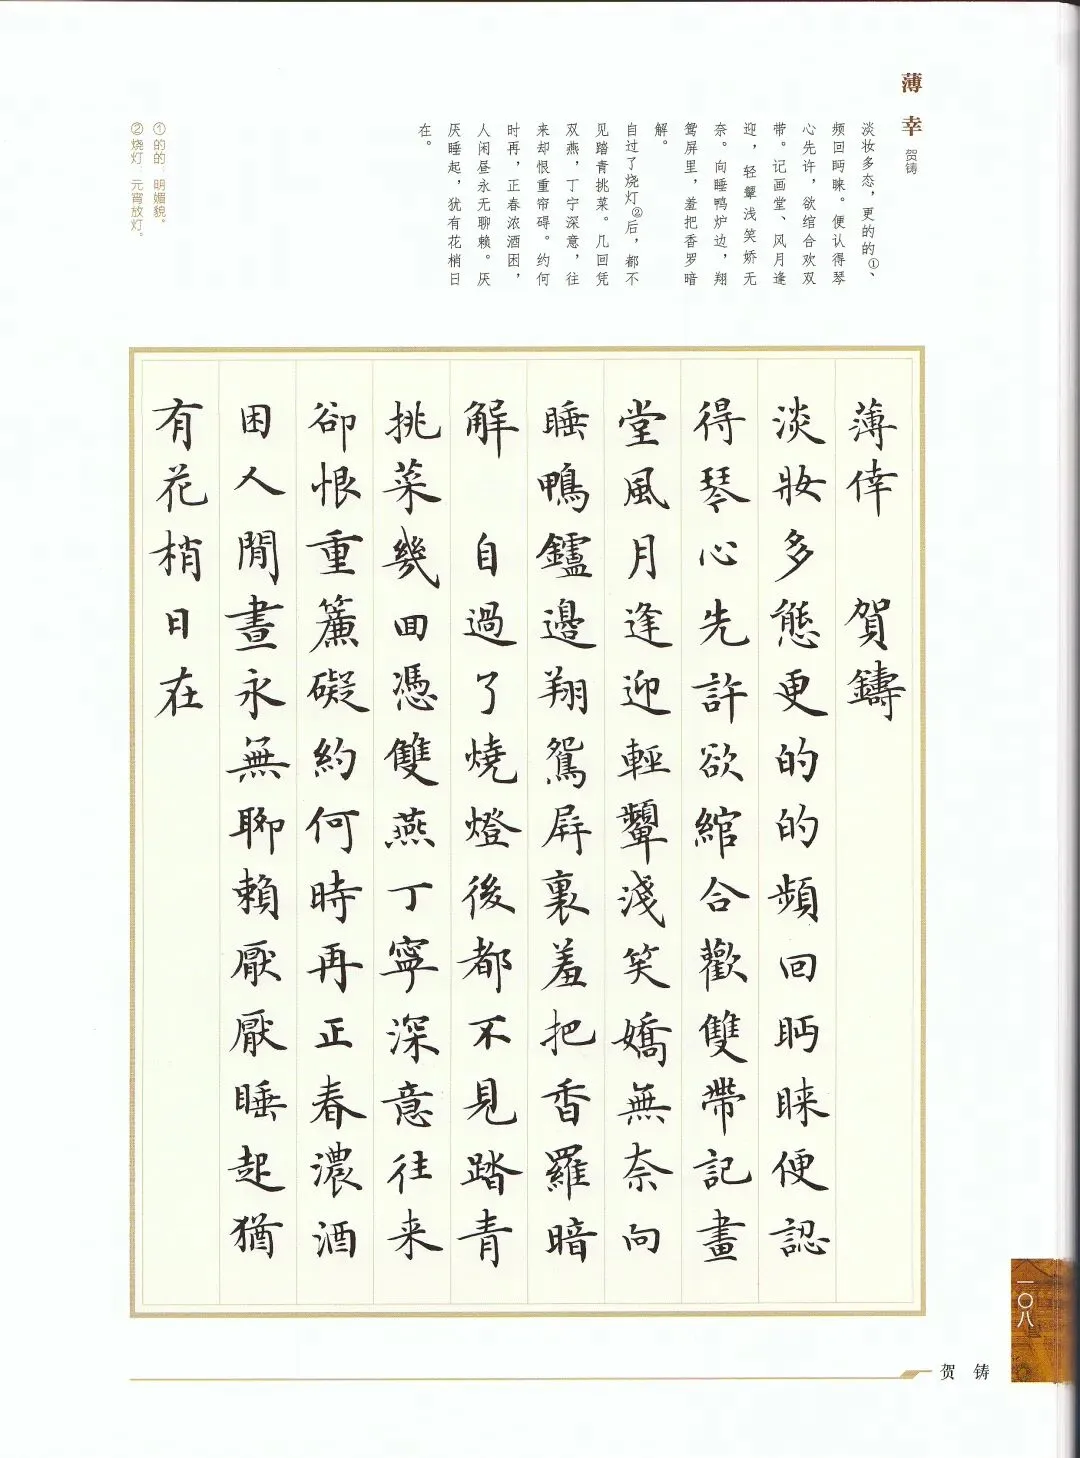 薄幸 贺铸
淡妆多态，更的的①、
频回眄睐。便认得琴
心先许，欲绾合欢双
带。记画堂、风月逢
迎，轻颦浅笑娇无
奈。向睡鸭炉边，翔
鸳屏里，羞把香罗暗
解。
自过了烧灯②后，都不
见踏青挑菜。几回凭
双燕，丁宁深意，往
来却恨重帘碍。约何
时再，正春浓酒困，
人闲昼永无聊赖。厌
厌睡起，犹有花梢日
在。
①的的：明媚貌。
②烧灯：元宵放灯。
薄倖 賀鑄
淡妝多態更的的頻回眄睞便認
得琴心先許欲綰合歡雙帶記畫
堂風月逢迎輕顰淺笑嬌無奈向
睡鴨鑪邊翔鴛屏裏羞把香羅暗
解 自過了燒燈後都不見踏青
挑菜幾回憑雙燕丁寧深意往来
卻恨重簾礙約何時再正春濃酒
困人閒晝永無聊賴厭厭睡起猶
有花梢日在
一〇八
贺铸